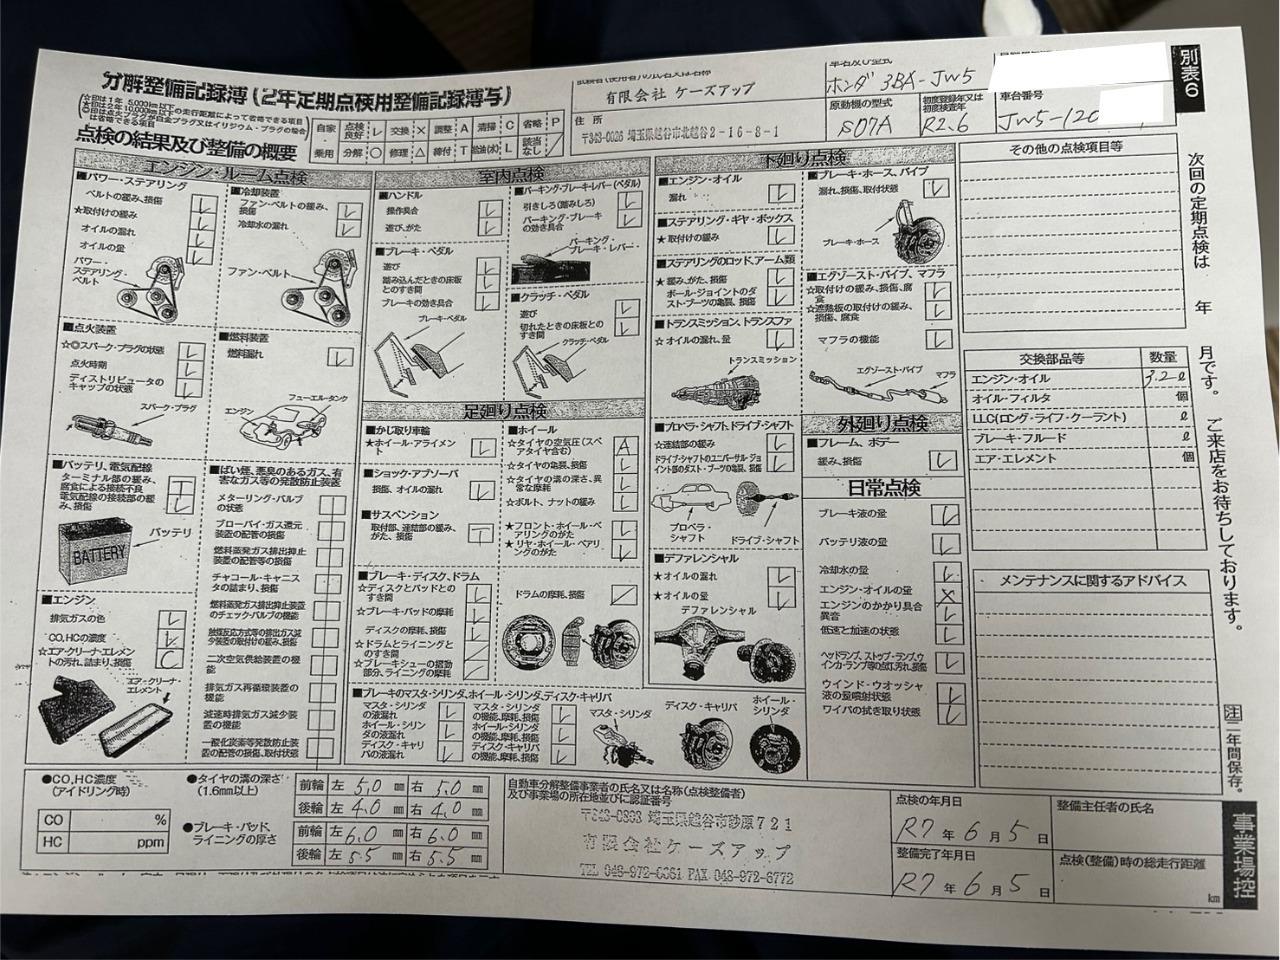 分解整備記録簿(2年定期点検用整備記録簿写)
☆印は1年 5,000km以下の走行距離によって省略できる項目
★印は2年 10,000km以下の走行距離によって省略できる項目
点検の結果及び整備の概要
自家 点検良好 レ 交換 × 調整 A 清掃 C 省略 P
乗用 分解 ○ 修理 △ 締付 T 給油(水) L 該当なし ／
有限会社 ケーズアップ
住所
〒343-0026 埼玉県越谷市北越谷2-16-8-1
車名及び型式
ホンダ 3BA-JW5
原動機の型式
S07A
初度登録年又は初度検査年
R2.6
車台番号
JW5-120
別表6
エンジン・ルーム点検
■パワー・ステアリング
ベルトの緩み、損傷 レ
★取付けの緩み レ
オイルの漏れ レ
オイルの量 レ
パワー・ステアリング・ベルト
■冷却装置
ファン・ベルトの緩み、損傷 レ
冷却水の漏れ レ
ファン・ベルト
■点火装置
☆◎スパーク・プラグの状態 レ
点火時期 レ
ディストリビュータのキャップの状態 レ
スパーク・プラグ
■燃料装置
燃料漏れ レ
エンジン
フューエル・タンク
■バッテリ、電気配線
ターミナル部の緩み、腐食による接続不良 T
電気配線の接続部の緩み、損傷 レ
バッテリ
BATTERY
■エンジン
排気ガスの色 レ
CO、HCの濃度 レ
☆エア・クリーナ・エレメントの汚れ、詰まり、損傷 C
エア・クリーナ・エレメント
■ばい煙、悪臭のあるガス、有害なガス等の発散防止装置
メターリング・バルブの状態
ブローバイ・ガス還元装置の配管の損傷
燃料蒸発ガス排出抑止装置の配管等の損傷
チャコール・キャニスタの詰まり、損傷
燃料蒸発ガス排出抑止装置のチェック・バルブの機能
触媒反応方式等の排出ガス減少装置の取付けの緩み、損傷
二次空気供給装置の機能
排気ガス再循環装置の機能
減速時排気ガス減少装置の機能
一酸化炭素等発散防止装置の配管の損傷、取付状態
室内点検
■ハンドル
操作具合 レ
遊び、がた レ
■ブレーキ・ペダル
遊び レ
踏み込んだときの床板とのすき間 レ
ブレーキの効き具合 レ
ブレーキ・ペダル
■パーキング・ブレーキ・レバー(ペダル)
引きしろ(踏みしろ) レ
パーキング・ブレーキの効き具合 レ
パーキング・ブレーキ・レバー・
■クラッチ・ペダル
遊び レ
切れたときの床板とのすき間 レ
クラッチ・ペダル
足廻り点検
■かじ取り車輪
★ホイール・アライメント レ
■ショック・アブソーバ
損傷、オイルの漏れ レ
■サスペンション
取付部、連結部の緩み、がた、損傷 T
■ホイール
☆タイヤの空気圧(スペアタイヤ含む) A
☆タイヤの亀裂、損傷 レ
☆タイヤの溝の深さ、異常な摩耗 レ
☆ボルト、ナットの緩み レ
★フロント・ホイール・ベアリングのがた レ
★リヤ・ホイール・ベアリングのがた レ
■ブレーキ・ディスク、ドラム
☆ディスクとパッドとのすき間 レ
☆ブレーキ・パッドの摩耗 レ
ディスクの摩耗、損傷 レ
☆ドラムとライニングとのすき間 ／
☆ブレーキシューの摺動部分、ライニングの摩耗 ／
ドラムの摩耗、損傷 ／
■ブレーキのマスタ・シリンダ、ホイール・シリンダ、ディスク・キャリパ
マスタ・シリンダの液漏れ レ
ホイール・シリンダの液漏れ レ
ディスク・キャリパの液漏れ レ
マスタ・シリンダの機能、摩耗、損傷 レ
ホイール・シリンダの機能、摩耗、損傷 レ
ディスク・キャリパの機能、摩耗、損傷 レ
マスタ・シリンダ
ディスク・キャリパ
ホイール・シリンダ
下廻り点検
■エンジン・オイル
漏れ レ
■ステアリング・ギヤ・ボックス
★取付けの緩み レ
■ステアリングのロッド、アーム類
★緩み、がた、損傷 レ
ボール・ジョイントのダスト・ブーツの亀裂、損傷 レ
■トランスミッション、トランスファ
☆オイルの漏れ、量 レ
トランスミッション
■プロペラ・シャフト、ドライブ・シャフト
☆連結部の緩み レ
ドライブ・シャフトのユニバーサル・ジョイント部のダスト・ブーツの亀裂、損傷 レ
プロペラ・シャフト
ドライブ・シャフト
■デファレンシャル
★オイルの漏れ レ
★オイルの量 レ
デファレンシャル
■ブレーキ・ホース、パイプ
漏れ、損傷、取付状態 レ
ブレーキ・ホース
■エグゾースト・パイプ、マフラ
☆取付けの緩み、損傷、腐食 レ
☆遮熱板の取付けの緩み、損傷、腐食 レ
マフラの機能 レ
エグゾースト・パイプ
マフラ
外廻り点検
■フレーム、ボデー
緩み、損傷 レ
日常点検
ブレーキ液の量 レ
バッテリ液の量 レ
冷却水の量 レ
エンジン・オイルの量 ×
エンジンのかかり具合 異音 レ
低速と加速の状態 レ
ヘッドランプ、ストップ・ランプ、ウインカ・ランプ等の点灯、汚れ、損傷 レ
ウインド・ウオッシャ液の量噴射状態 レ
ワイパの拭き取り状態 レ
その他の点検項目等
交換部品等 数量
エンジン・オイル 3.2 ℓ
オイル・フィルタ 個
LLC(ロング・ライフ・クーラント) ℓ
ブレーキ・フルード ℓ
エア・エレメント 個
メンテナンスに関するアドバイス
次回の定期点検は 年 月です。 ご来店をお待ちしております。
注 二年間保存。
事業場控
●CO、HC濃度(アイドリング時)
CO %
HC ppm
●タイヤの溝の深さ(1.6mm以上)
前輪 左 5.0 mm 右 5.0 mm
後輪 左 4.0 mm 右 4.0 mm
●ブレーキ・パッド、ライニングの厚さ
前輪 左 6.0 mm 右 6.0 mm
後輪 左 5.5 mm 右 5.5 mm
自動車分解整備事業者の氏名又は名称(点検整備者)及び事業場の所在地並びに認証番号
埼玉県越谷市砂原721
有限会社ケーズアップ
点検の年月日
R7 年 6 月 5 日
整備完了年月日
R7 年 6 月 5 日
整備主任者の氏名
点検(整備)時の総走行距離
km